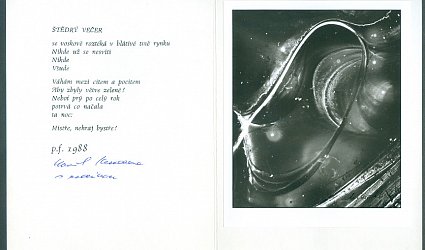 ŠTĚDRÝ VEČER
se voskově roztéká v blátivé tmě rynku
Nikde už se nesvítí
Nikde
Všude
Váhám mezi citem a pocitem
Aby zbyly větve zelené?
Neboť prý po celý rok
potrvá co načala
ta noc:
Mistře, nehraj bystře!
p.f. 1988